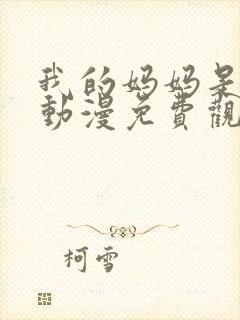 我的妈妈是
動漫免費觀
柯雪